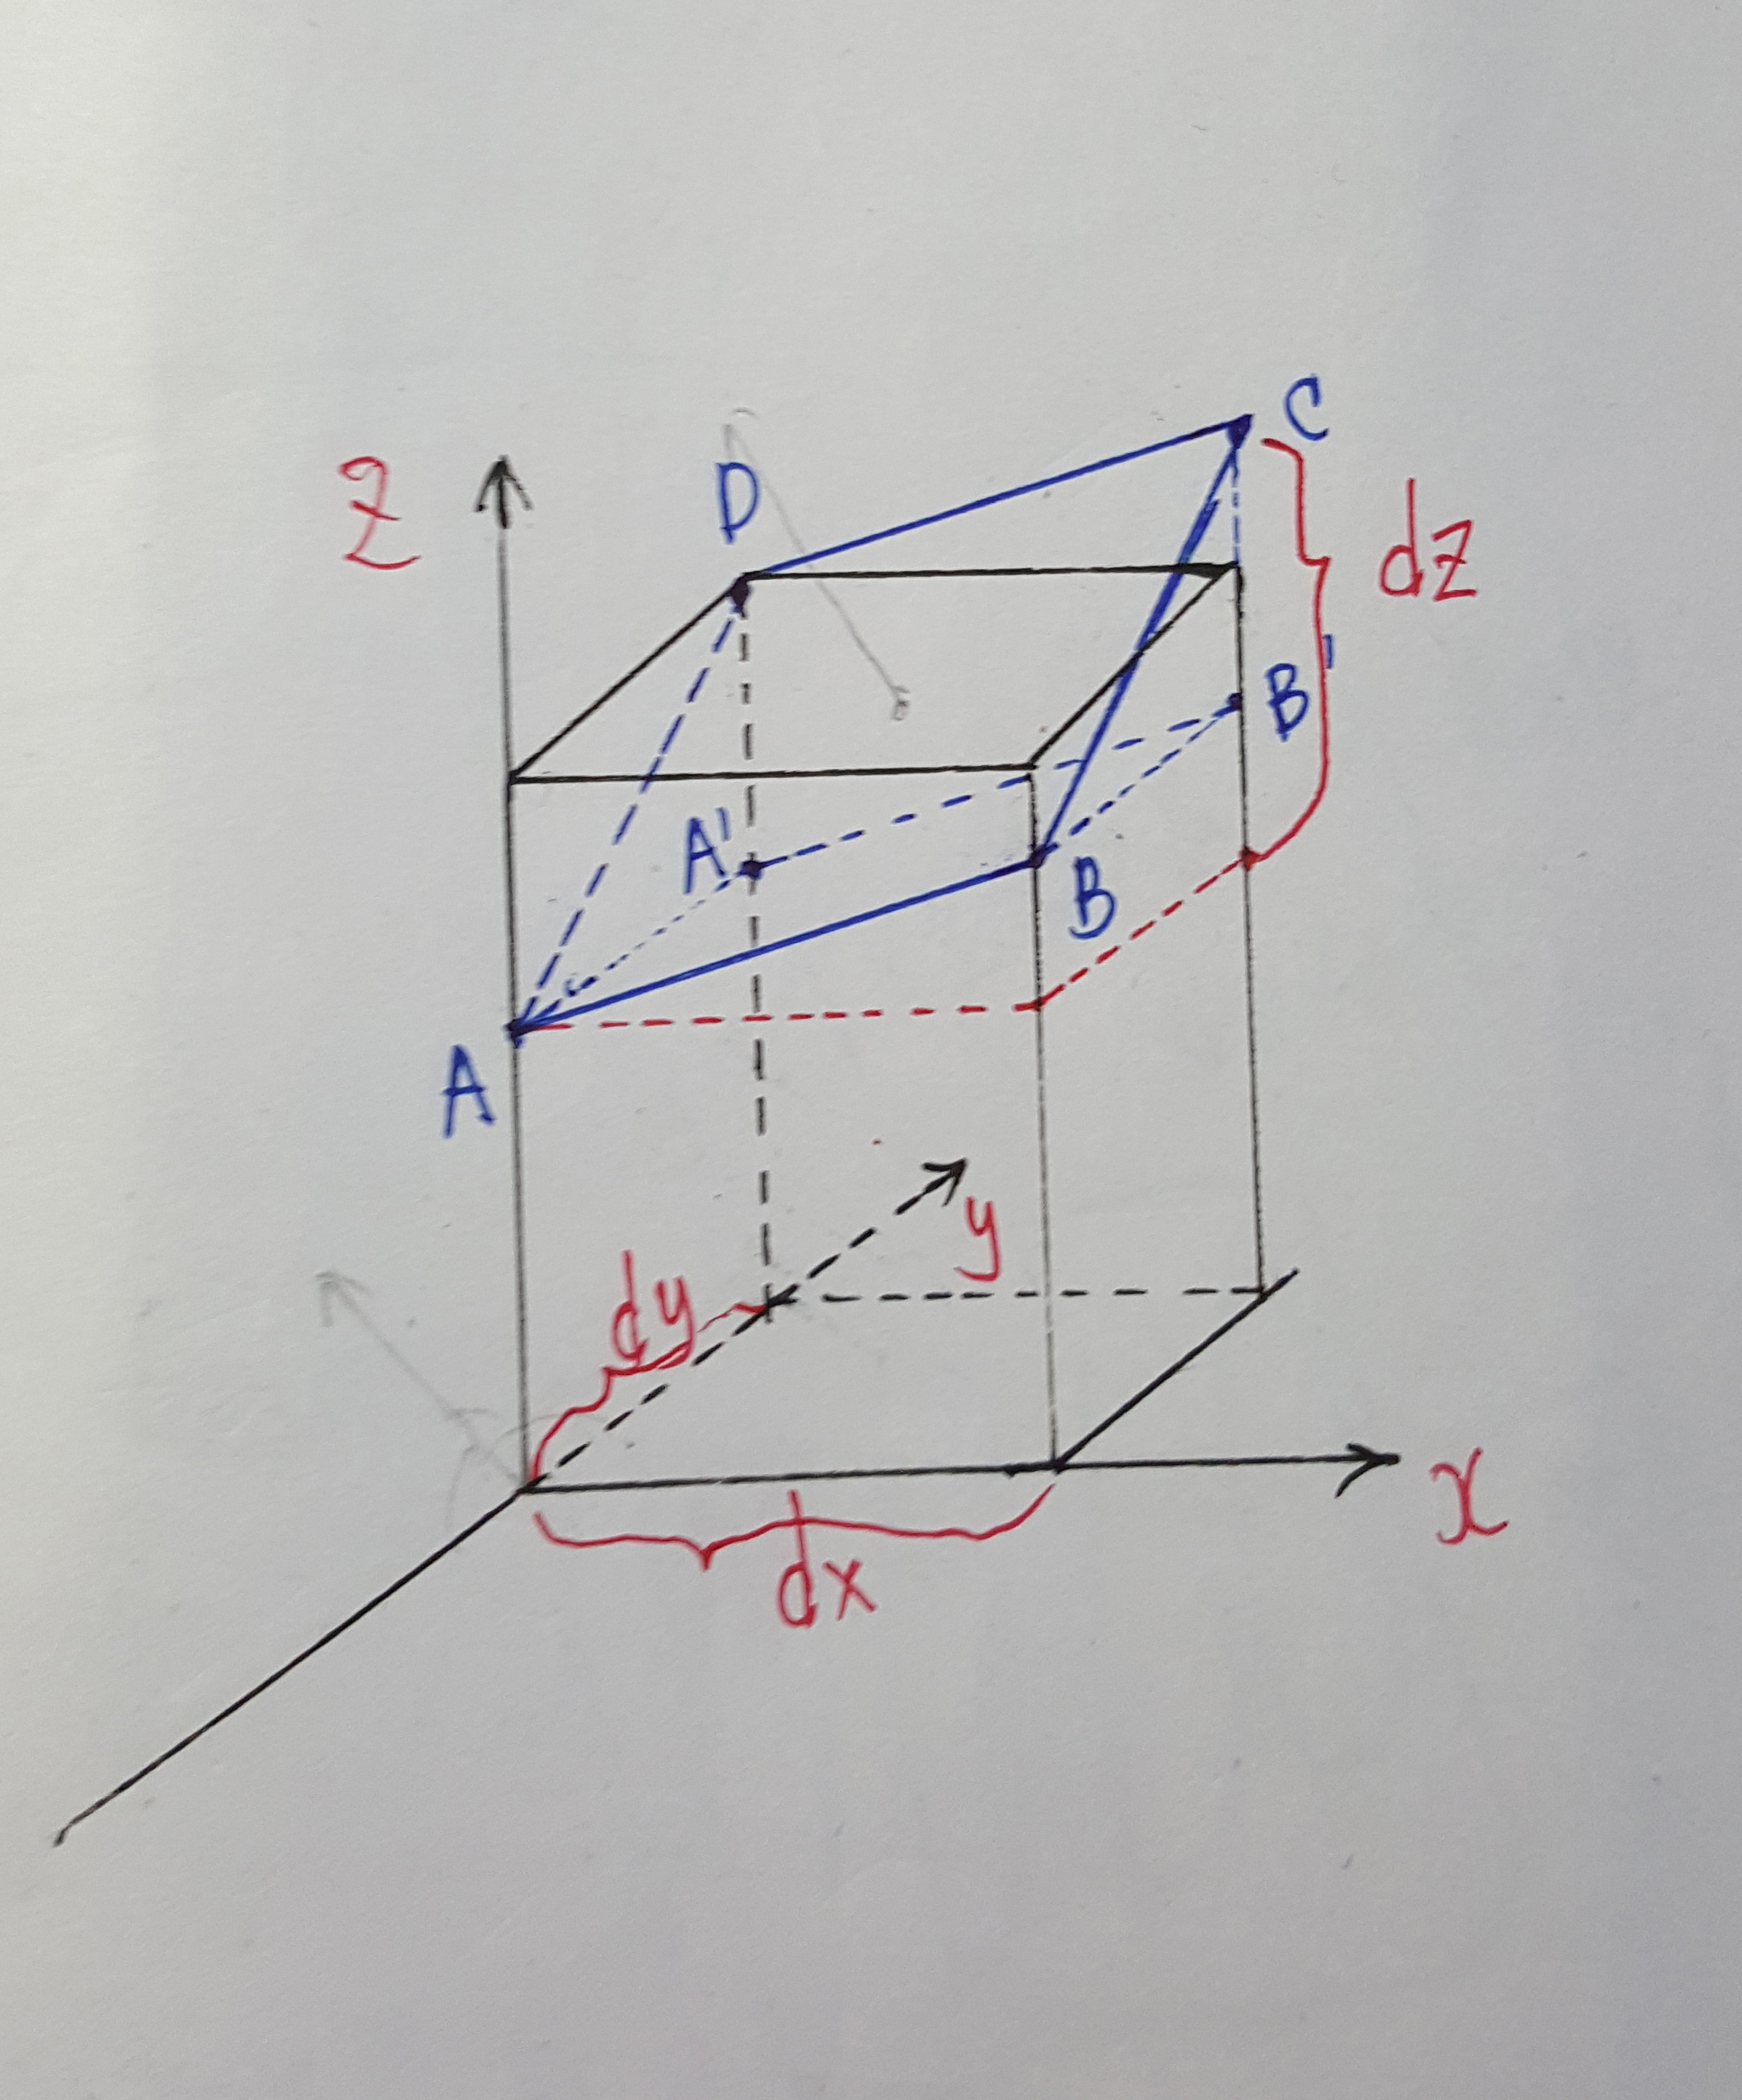 C
D
z
dz
B'
A'
B
A
y
dy
x
dx